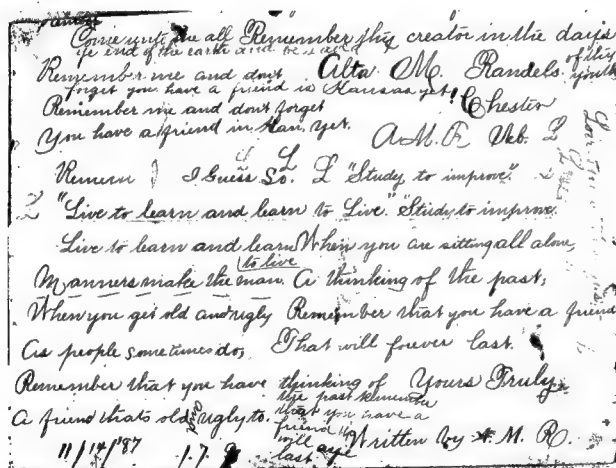 Come unto me all Remember thy creator in the days
ye end of the earth and be saved of thy
Remember me and dont Alta M. Randels. youth
forget you have a friend in Kansas yet! Chester
Remember me and dont forget
You have a friend in Kan. yet. A. M. R. Neb. L
Remem I Guess So. L "Study to improve".
L "Live to learn and learn to Live." "Study to improve.
Live to learn and learn When you are sitting all alone,
to live
Manners make the man. A thinking of the past;
When you get old and ugly Remember that you have a friend
As people sometimes do, That will forever last.
Remember that you have thinking of Yours Truly.
the past Remember
A friend thats old ugly to. that you have a
friend
will Written by A. M. R.
11/14/'87 last